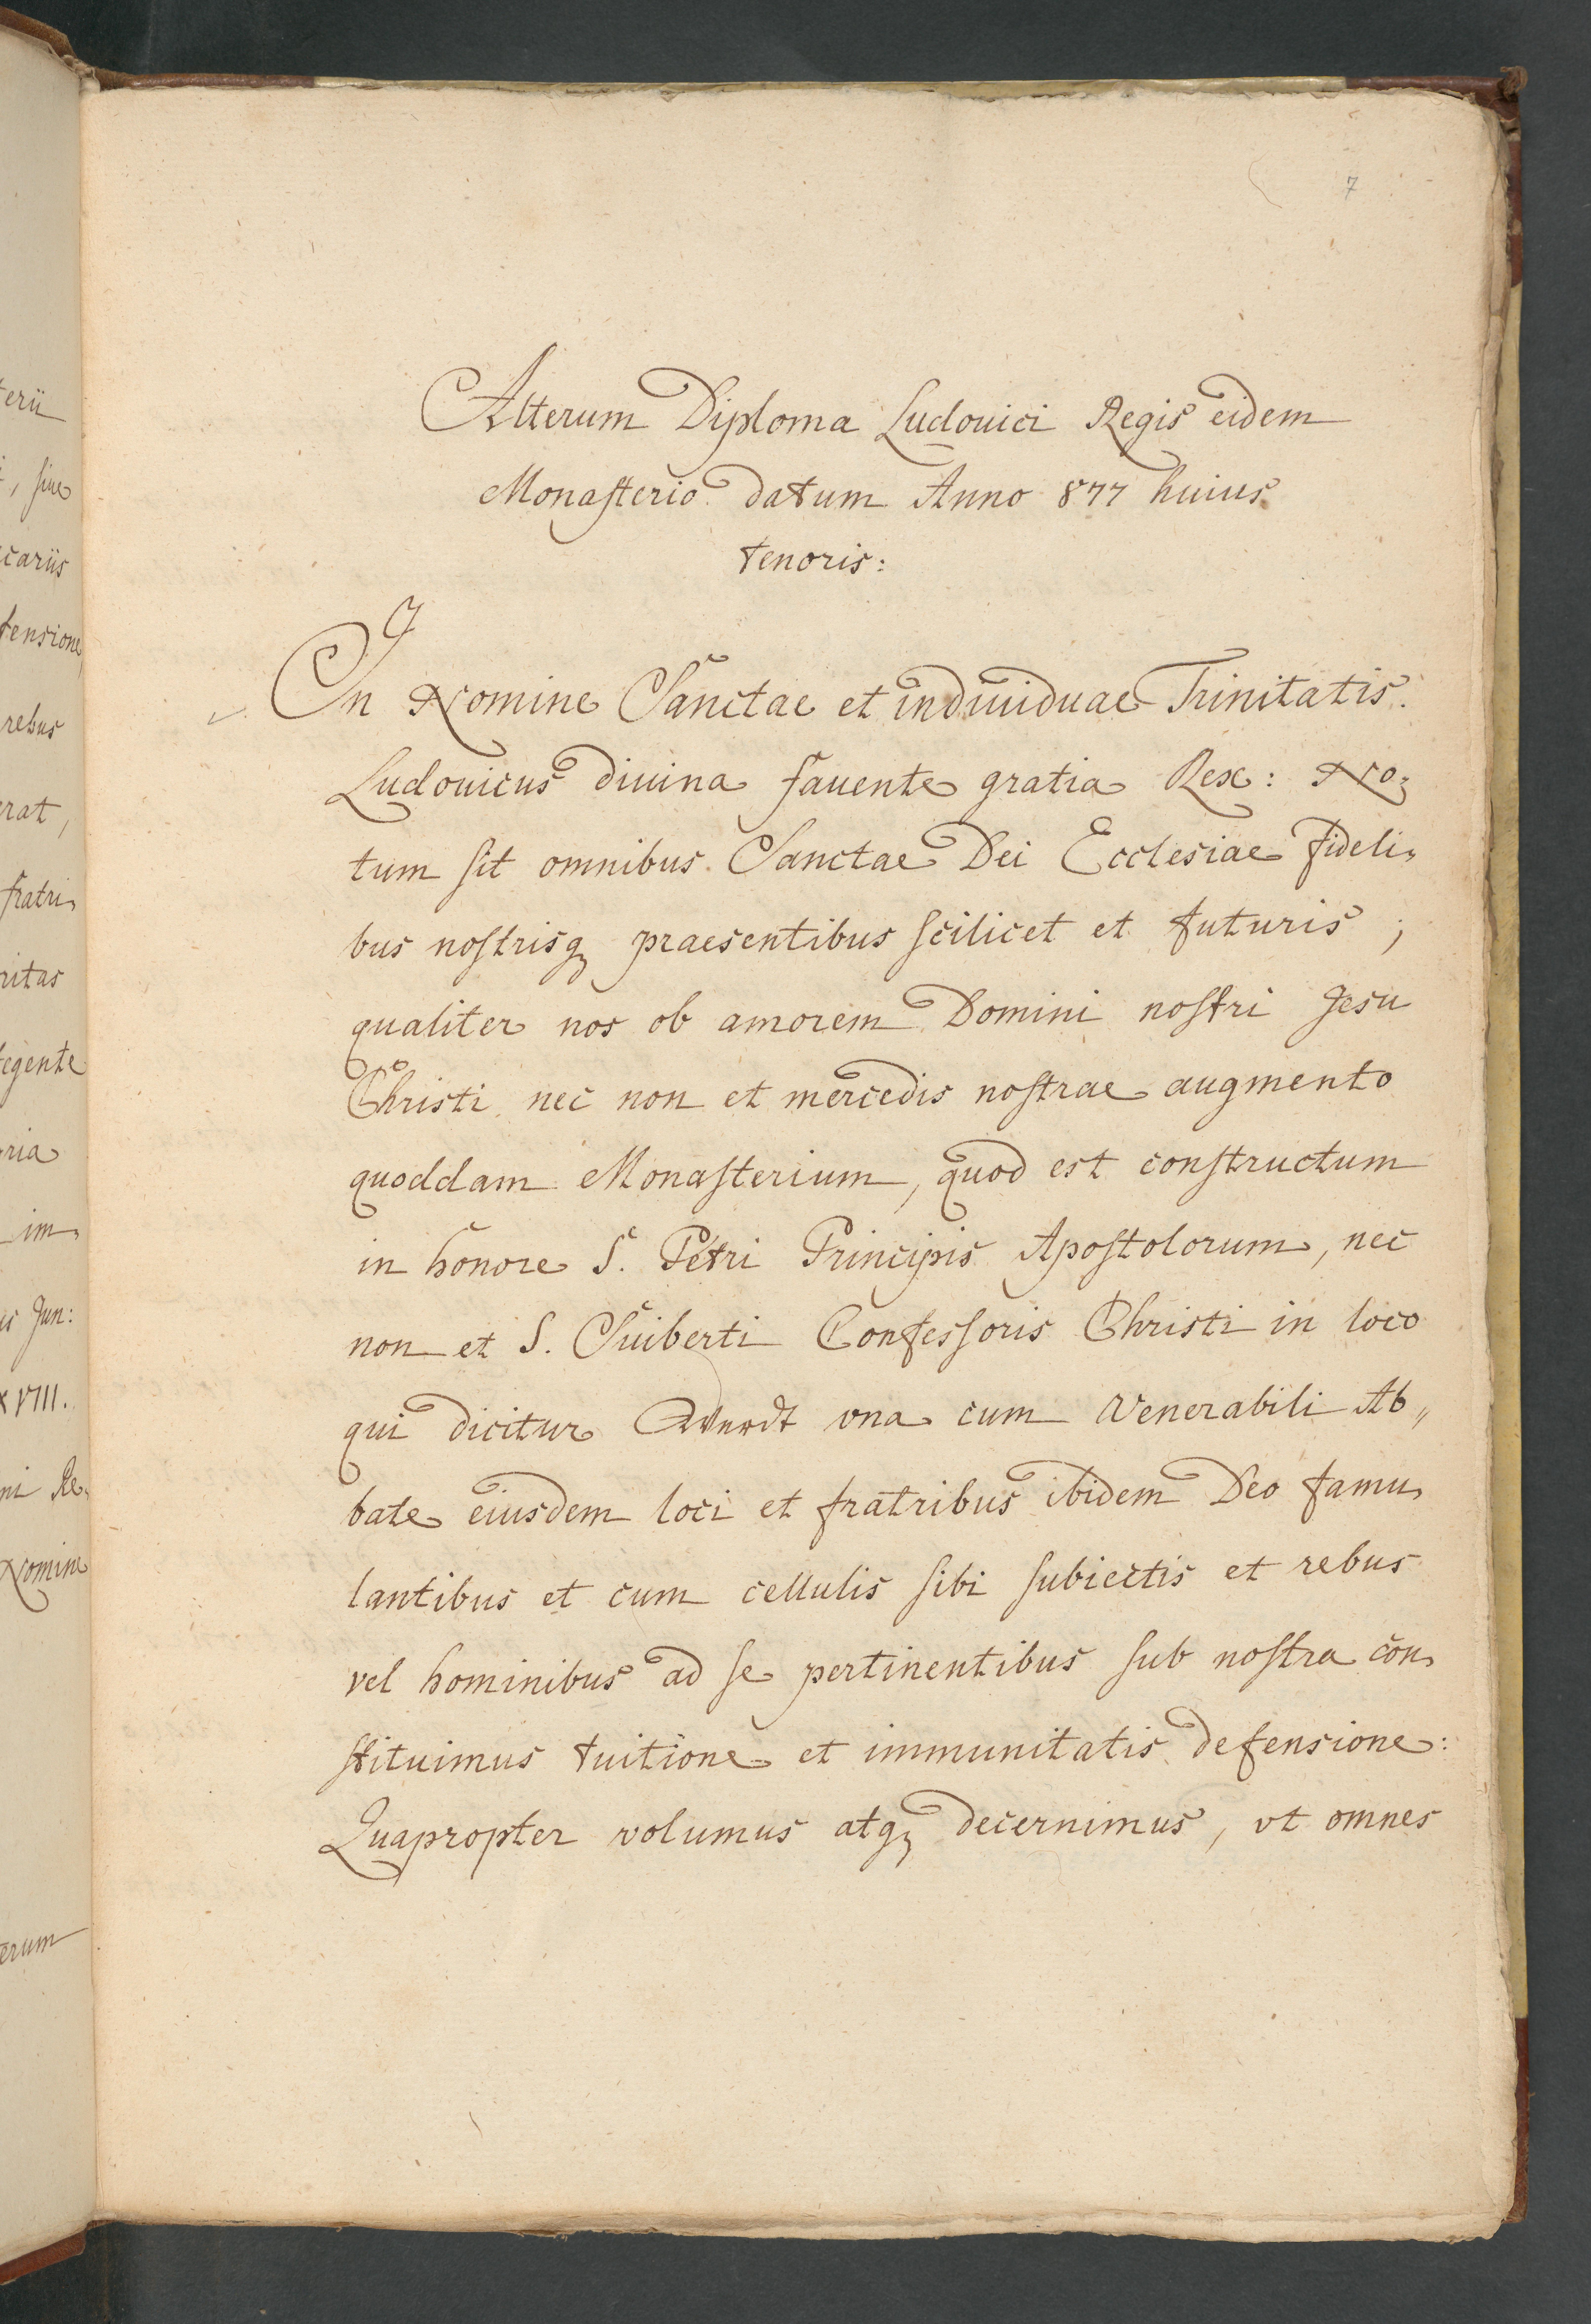 7
Alterum Diploma Ludouici Regis eidem
Monasterio datum Anno 877 huius
tenoris:
In Nomine Sanctae et indiuiduae Trinitatis.
Ludouicus diuina fauente gratia Rex: No-
tum sit omnibus Sanctae Dei Ecclesiae fideli-
bus nostrisq praesentibus scilicet et futuris;
qualiter nos ob amorem Domini nostri Jesu
Christi nec non et mercedis nostrae augmento
quoddam Monasterium, quod est constructum
in honore S. Petri Principis Apostolorum, nec
non et S. Suiberti Confessoris Christi in loco
qui dicitur Werdt vna cum Venerabili Ab-
bate eiusdem loci et fratribus ibidem Deo famu-
lantibus et cum cellulis sibi subiectis et rebus
vel hominibus ad se pertinentibus sub nostra con-
stituimus tuitione et immunitatis defensione:
Quapropter volumus atq decernimus, vt omnes